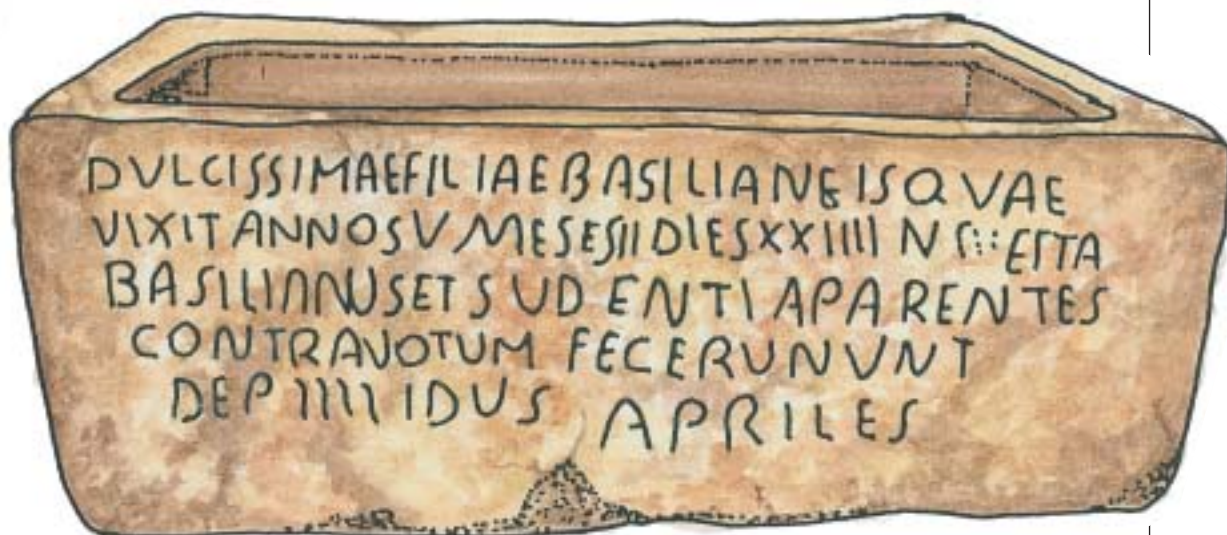 DVLCISSIMAEFILIAEBASILIANEISQVAE
VIXITANNOSVMESESIIDIESXXIIII N
BASILIANVSETSUDENTIAPARENTES
CONTRAVOTUM FECERUNVNT
DEPIIIIIDUS APRILES